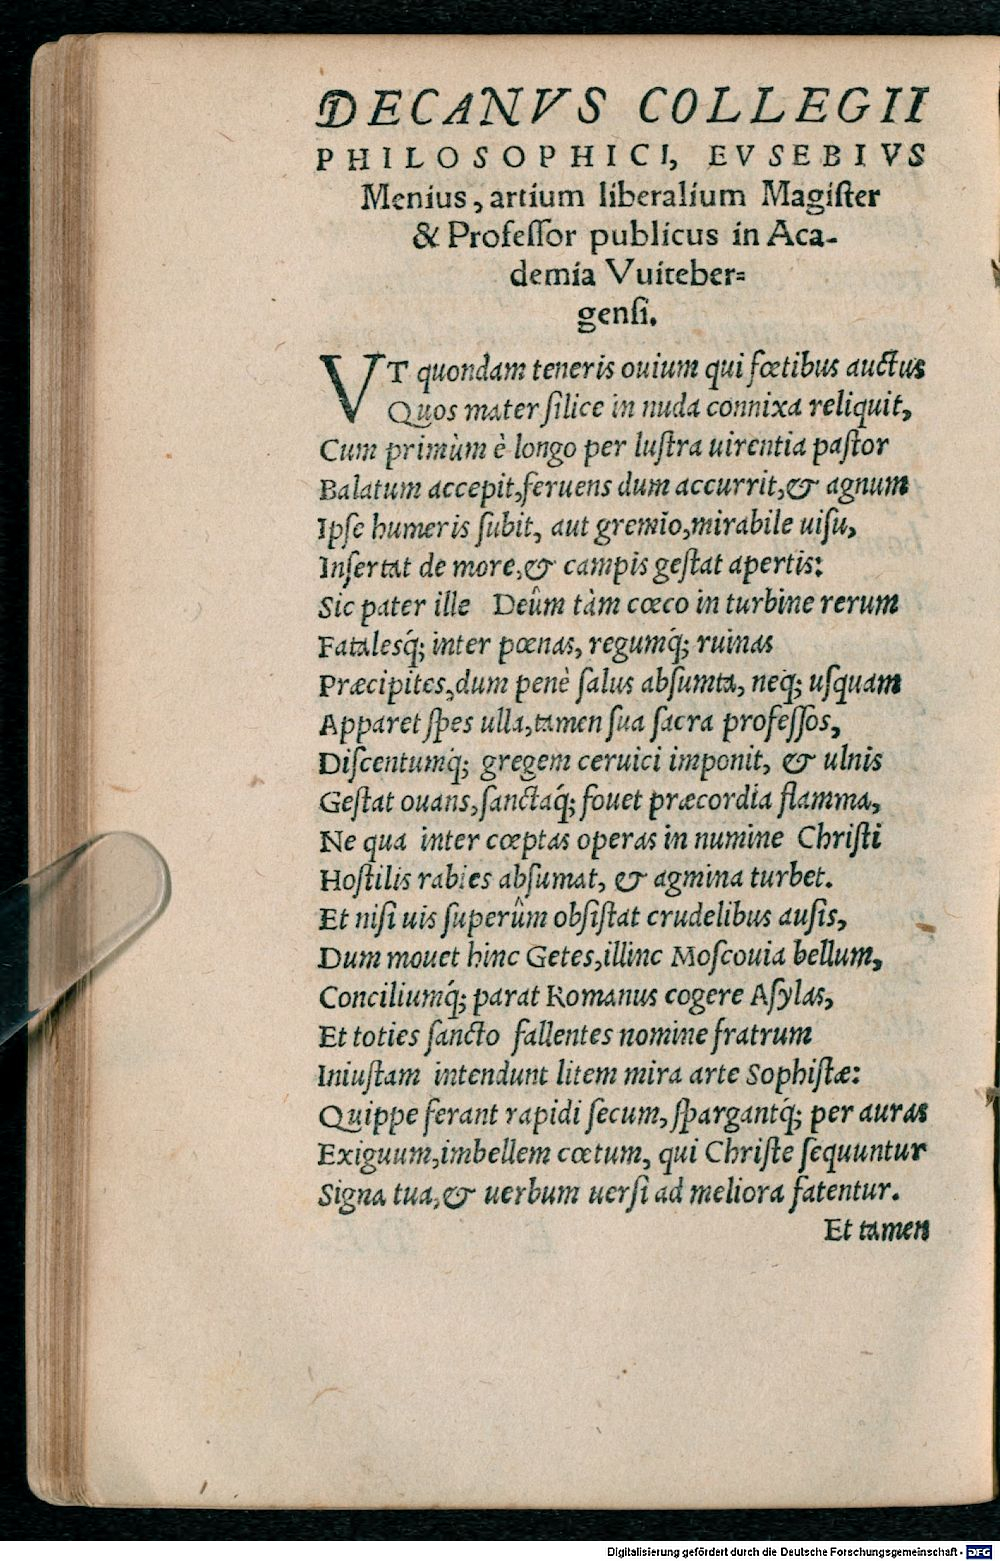 DECANVS COLLEGII
PHILOSOPHICI, EVSEBIVS
Menius, artium liberalium Magiſter
& Profeſſor publicus in Aca-
demia Vuiteber=
genſi.
VT quondam teneris ouium qui fœtibus auctus
Quos mater ſilice in nuda connixa reliquit,
Cum primùm è longo per luſtra uirentia paſtor
Balatum accepit,feruens dum accurrit,& agnum
Ipſe humeris ſubit, aut gremio,mirabile uiſu,
Inſertat de more,& campis geſtat apertis:
Sic pater ille Deûm tàm cœco in turbine rerum
Fatalesq́; inter pœnas, regumq́; ruinas
Præcipites,dum penè ſalus abſumta, neq; uſquam
Apparet ſpes ulla,tamen ſua ſacra profeſſos,
Diſcentumq́; gregem ceruici imponit, & ulnis
Geſtat ouans,ſanctaq́; fouet præcordia flamma,
Ne qua inter cœptas operas in numine Chriſti
Hoſtilis rabies abſumat, & agmina turbet.
Et niſi uis ſuperûm obſiſtat crudelibus auſis,
Dum mouet hinc Getes,illinc Moſcouia bellum,
Conciliumq́; parat Romanus cogere Aſylas,
Et toties ſancto fallentes nomine fratrum
Iniuſtam intendunt litem mira arte Sophiſtæ:
Quippe ferant rapidi ſecum, ſpargantq́; per auras
Exiguum,imbellem cœtum, qui Chriſte ſequuntur
Signa tua,& uerbum uerſi ad meliora fatentur.
Et tamen
Digitalisierung gefördert durch die Deutsche Forschungsgemeinschaft - DFG